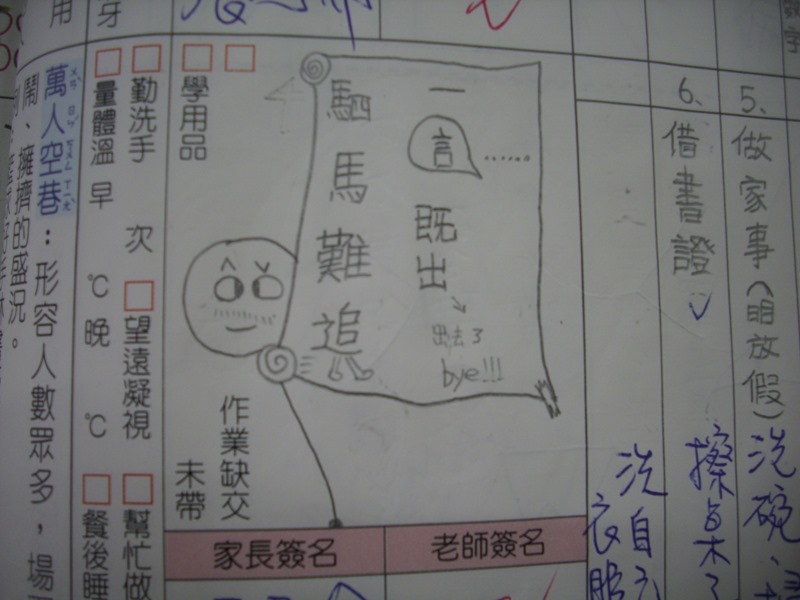 5、做家事(明放假)洗碗、
擦桌子
洗自己
衣服
6、借書證
一言……既出
出去了
bye!!!
駟馬難追
學用品
作業缺交
未帶
勤洗手
次
望遠凝視
幫忙做
量體溫 早 ℃ 晚 ℃
餐後
萬人空巷：形容人數眾多，場
鬧、擁擠的盛況。
家長簽名
老師簽名
用
牙